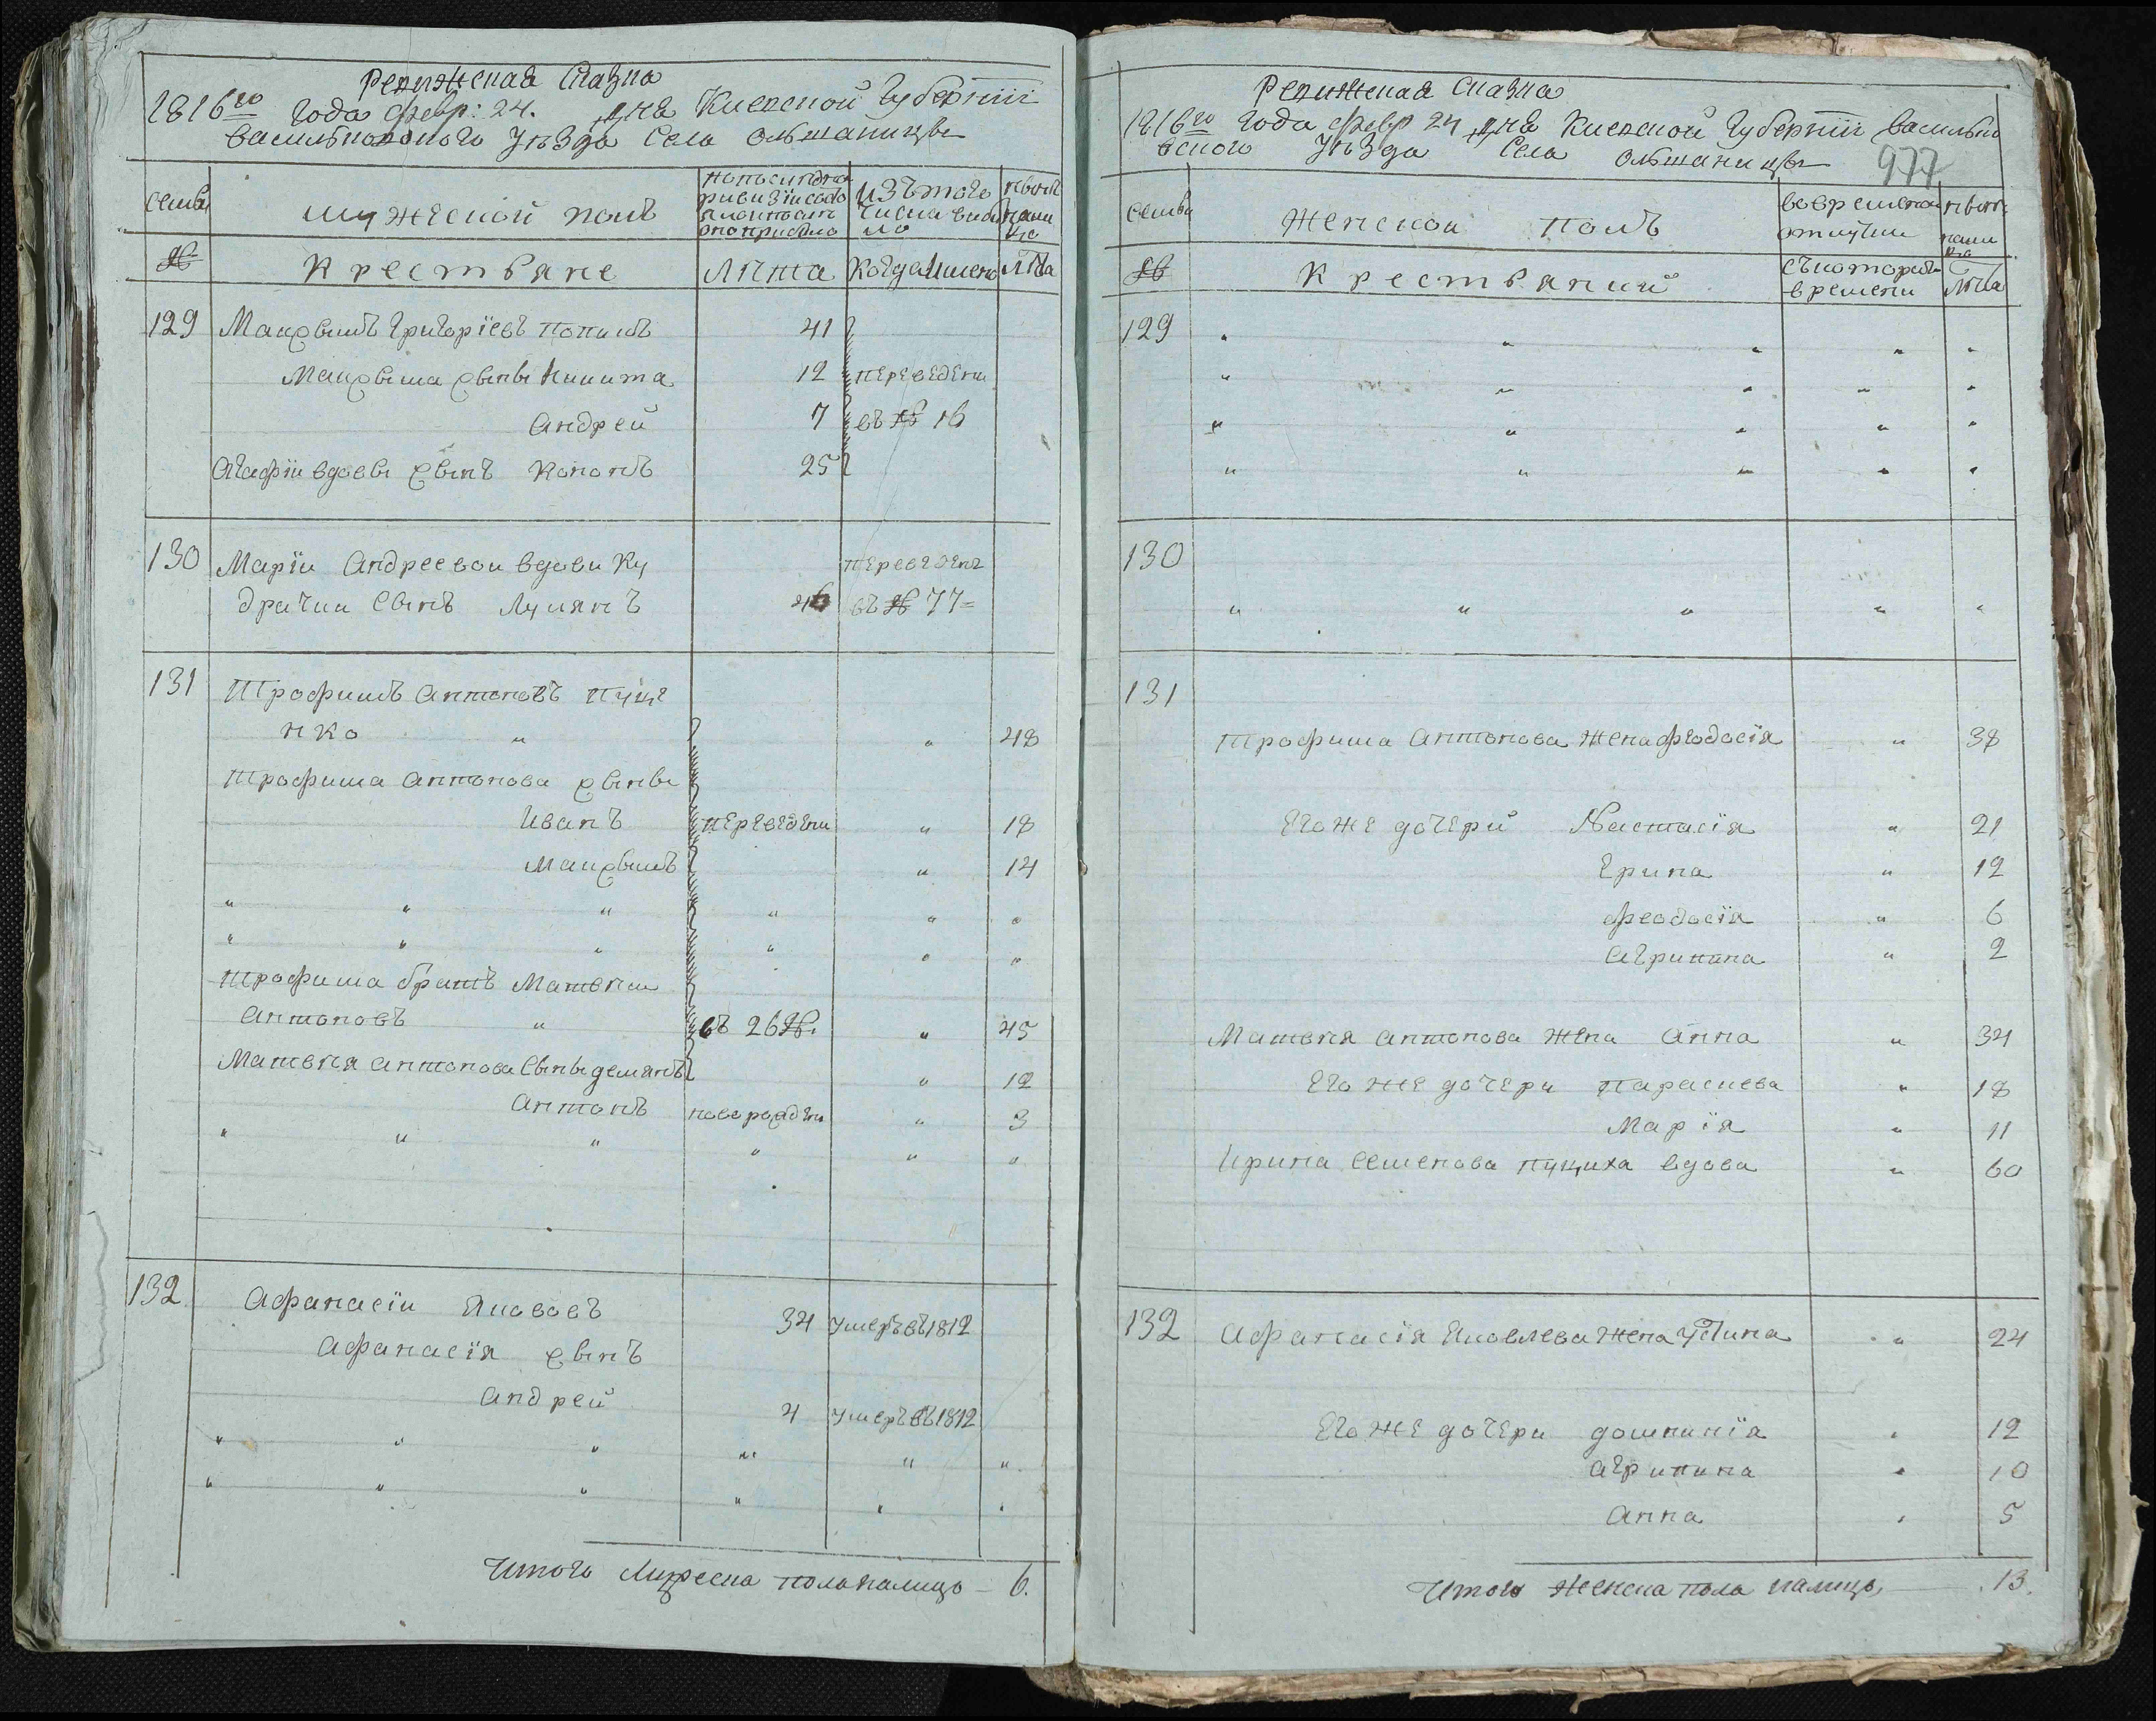 Ревижская Сказка
1816го года февр: 24. дня Киевской Губернїи
васильковского Уѣзда Села Ольшаницы
семьи
мужеской полъ
изътого
числа выбы
ло
налицо
№
Крестьяне
Лѣта
Когда имено
Лѣта
129 Маѯымъ Григорїевъ Попилъ 41
Маѯыма сыны Никита 12 переведены
Андрей 7 въ № 16
Агафїи вдовы сынъ Кононъ 25
130 Марїи Андреевои вдови Ку переведенъ
драчки Сынъ Лукянъ въ № 77
131 Трофимъ Антоновъ Пуце
нко " " 48
Трофима Антонова сыны
Иванъ переведены " 18
Маѯымъ " 14
" " " " " "
" " " " " "
Трофима братъ Матвѣи
Антоновъ " въ 26 №. " 45
Матвѣя Антонова Сыны демянъ " 12
Антонъ новорожден " 3
" " " " " "
132 Афанасїи Якововъ 34 умеръ въ 1812
Афанасїя сынъ
Андрей 4 умеръ въ 1812
" " " " " "
" " " " " "
Итого Мужеска пола налицо – 6.
Ревижская Сказка
1816го года февр 24 дня Киевской Губернїи Василько
вского Уѣзда Села Ольшаницы
977
семьи
Женской полъ
вовременой
отлучки
налицо
№
Крестьяний
съкоторого
времени
Лѣта
129 " " " " "
" " " " "
" " " " "
" " " " "
130
" " " " "
131
Трофима Антонова жена феодосїя " 38
Егоже дочерй Настасїя " 21
Ерина " 12
феодосїя " 6
Агрипина " 2
Матвѣя Антонова жена Анна " 34
Его же дочери параскева " 18
Марїя " 11
Ирина Семенова пуциха вдова " 60
132 Афанасїя Яковлева жена Устина " 24
Его же дочери домникїя " 12
Агрипина " 10
Анна " 5
Итого женска пола налицо, 13.